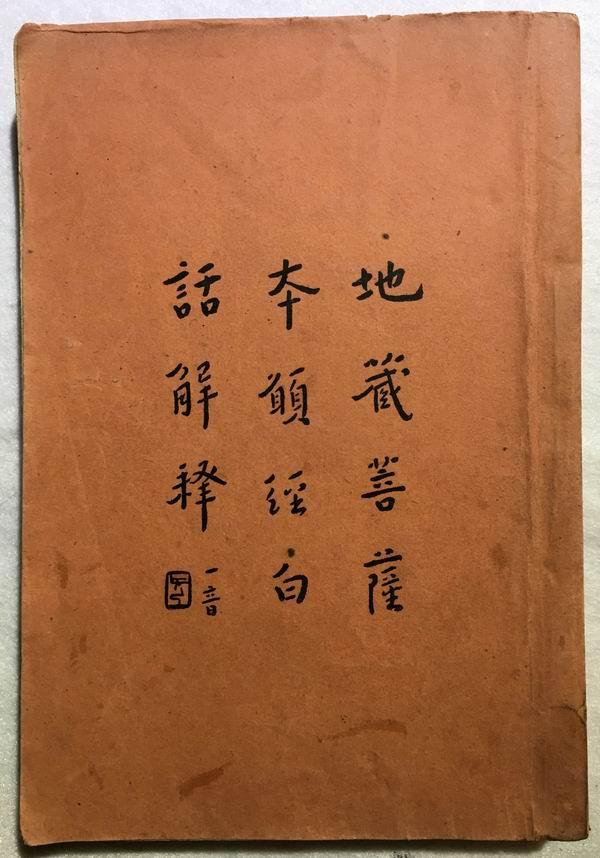 地藏菩薩
本願經白
話解释
一音